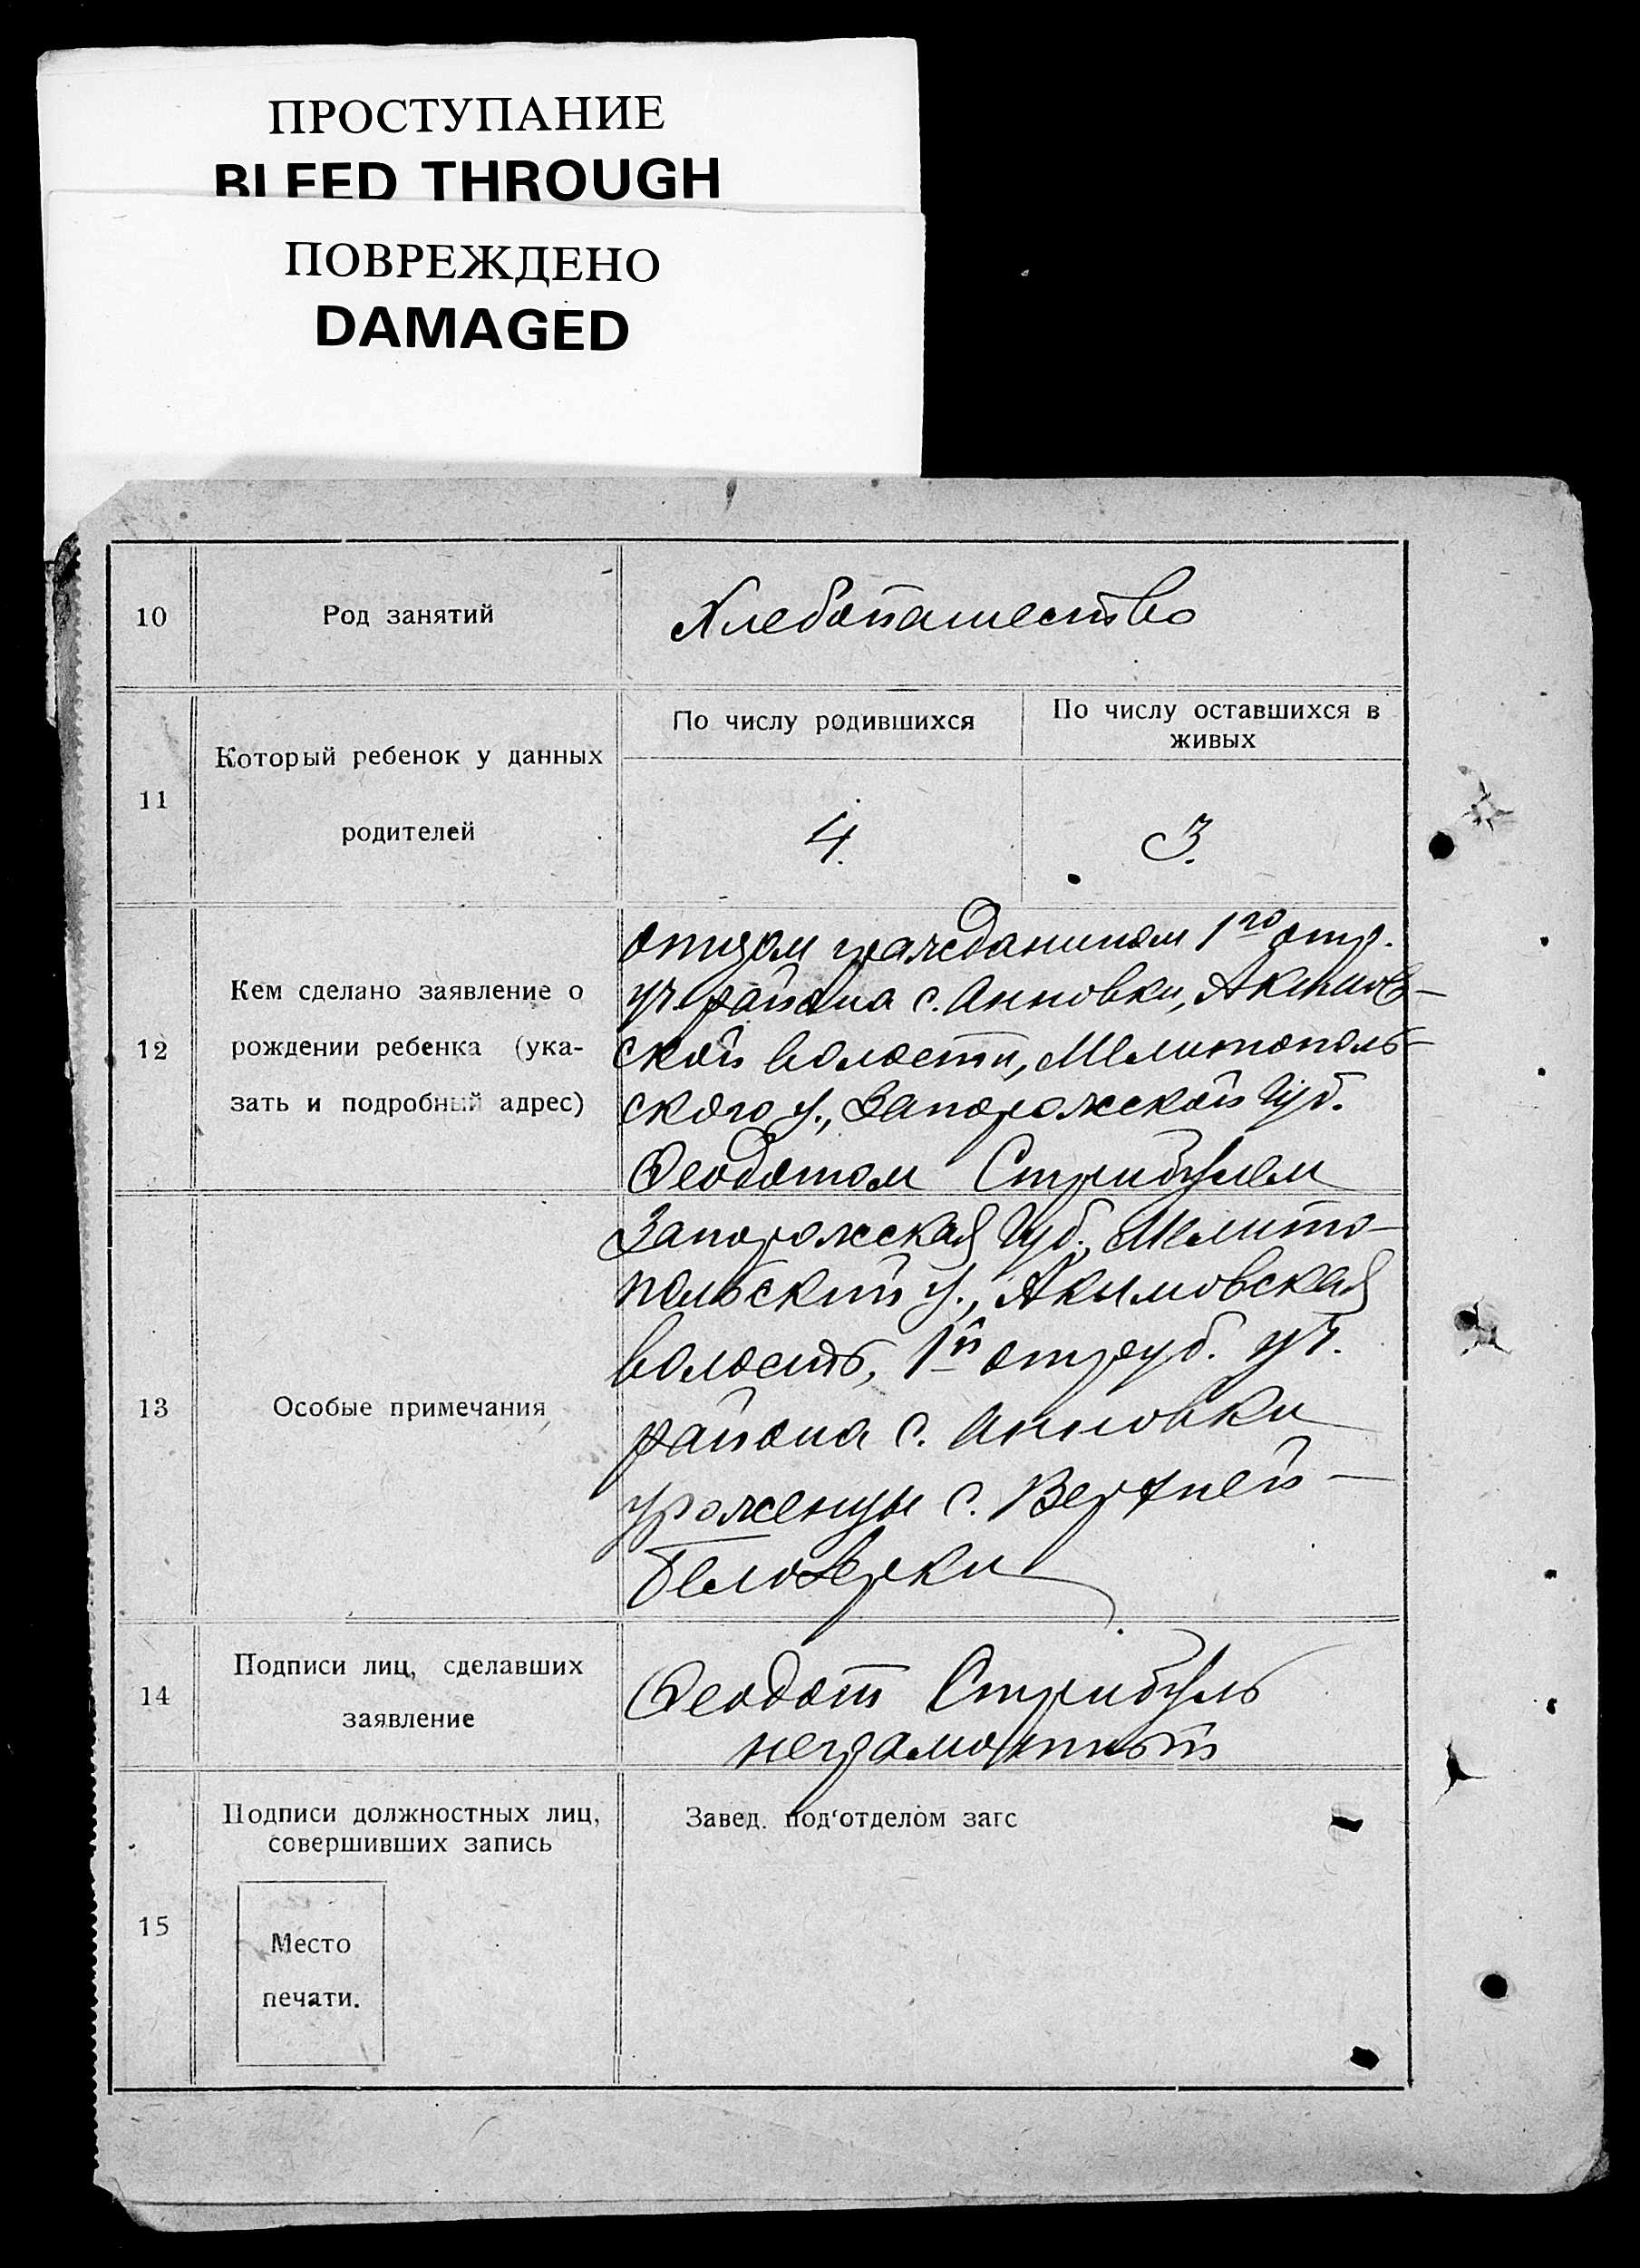 ПРОСТУПАНИЕ
BLEED THROUGH
ПОВРЕЖДЕНО
DAMAGED
10
Род занятий
Хлебопашество
11
Который ребенок у данных
родителей
По числу родившихся
По числу оставшихся в
живых
4.
3.
12
Кем сделано заявление о
рождении ребенка (ука-
зать и подробный адрес)
отцом гражданином 1го отр.
уч. района с. Анновки, Акимов-
ской волости, Мелитополь-
ского у., Запорожской Губ.
Феодотом Стрибулем
13
Особые примечания
Запорожская Губ., Мелито-
польский у., Акимовская
волость, 1й отруб. уч.
района с. Анновки
уроженцы с. Верхней-
Белозерки
14
Подписи лиц, сделавших
заявление
Феодот Стрибуль
неграмотный
15
Подписи должностных лиц,
совершивших запись
Завед. под‘отделом загс
Место
печати.